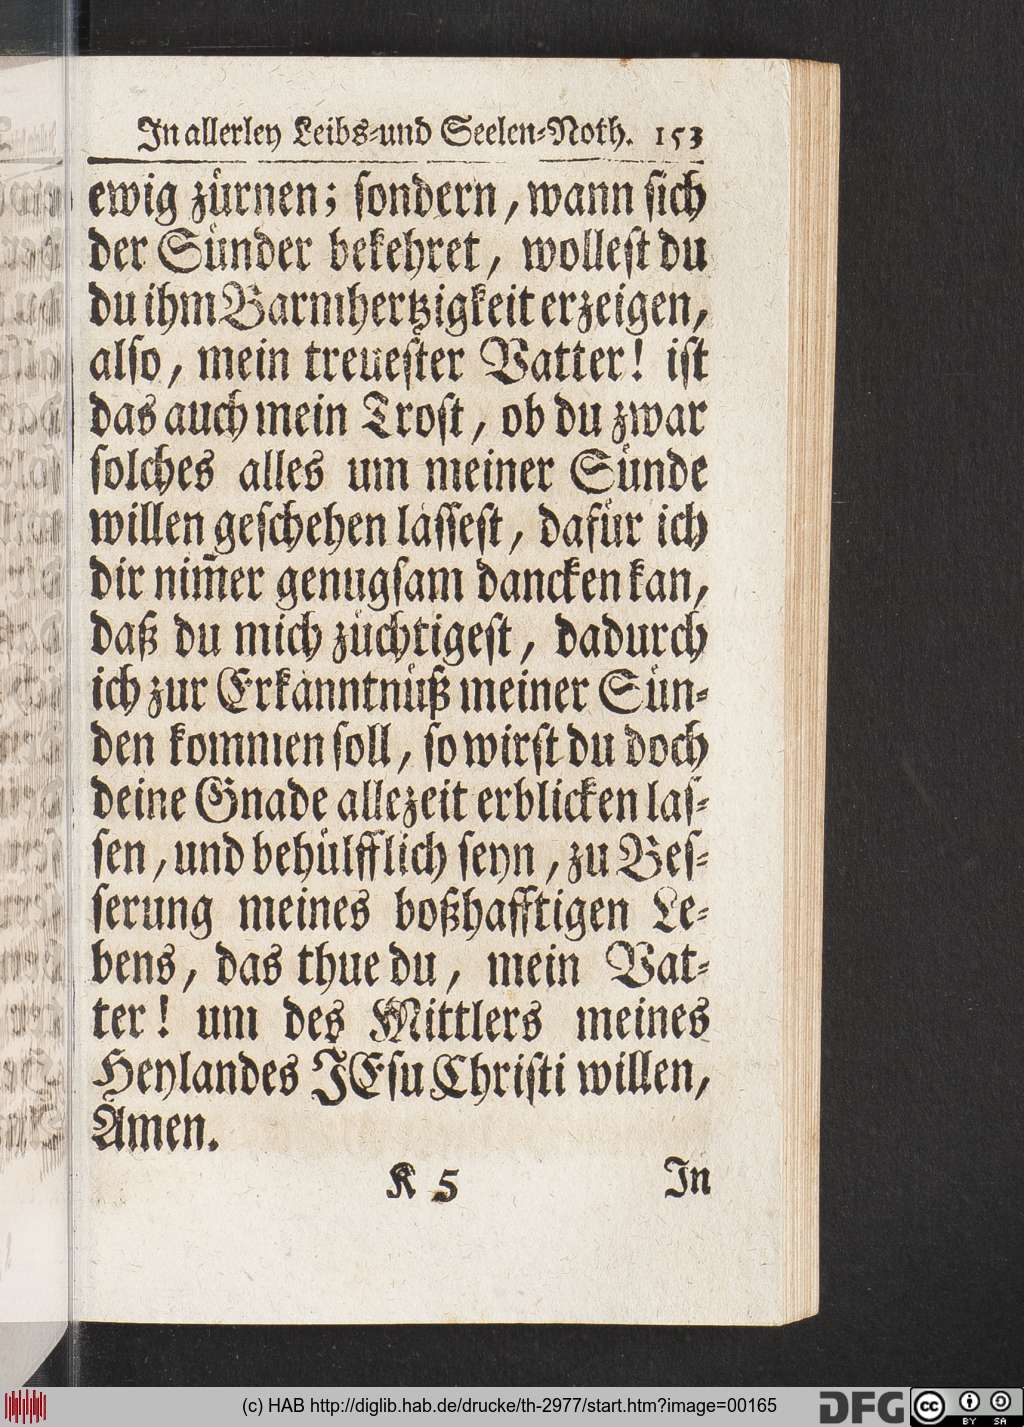 In allerley Leibs-und Seelen-Noth. 153
ewig zürnen; sondern, wann sich
der Sünder bekehret, wollest du
du ihm Barmhertzigkeit erzeigen,
also, mein treuester Vatter! ist
das auch mein Trost, ob du zwar
solches alles um meiner Sünde
willen geschehen lässest, dafür ich
dir nim̄er genugsam dancken kan,
daß du mich züchtigest, dadurch
ich zur Erkänntnüß meiner Sün-
den kommen soll, so wirst du doch
deine Gnade allezeit erblicken las-
sen, und behülfflich seyn, zu Bes-
serung meines boßhafftigen Le-
bens, das thue du, mein Vat-
ter! um des Mittlers meines
Heylandes JEsu Christi willen,
Amen.
K 5 In
(c) HAB http://diglib.hab.de/drucke/th-2977/start.htm?image=00165
DFG
cc BY SA